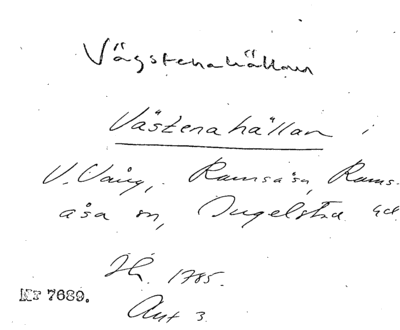 Vägstenahällan
Västenahällan i
V. Vång, Ramsåsa, Rams-
åsa sn, Ingelstad hd.
Sk. 1785.
Nr 7689.
Akt 3.